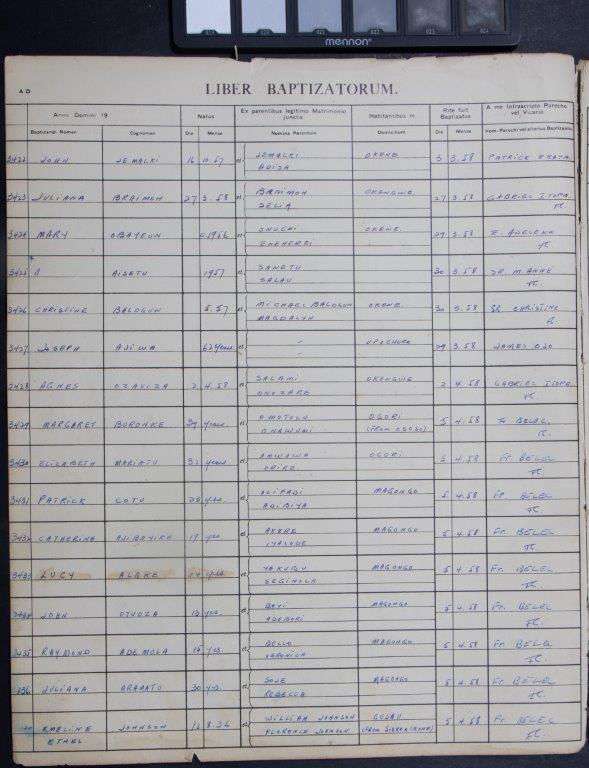 mennon
A D LIBER BAPTIZATORUM.
Anno Domini 19 Natus Ex parentibus legitimo Matrimonio juncta Habitantibus in Rite fuit Baptizatus A me infrascripto Parocho vel Vicario
Baptizandi Nomen Cognomen Die Mense Nomina Parentum Domicilium Die Mense Nom. Parochi vel alterius Baptizantis
3422 JOHN JEMALKI 16 10.57 et JEMALKI OKENE 3 3.58 PATRICK
ADIZA
3423 JULIANA BRAIMOH 27 3.58 et BRAIMOH OKENGWE. 27 3.58 GABRIEL ITOPA
SELIA Fr.
3424 MARY OBAYEUN c.1956 et ONUCHI OKENE. 29 3.58
Fr.
3425 AISETU 1957 et SANETU 30 3.58 SR. M. ANNE
SALAU Fr.
3426 CHRISTINE BALOGUN 5.57 et MICHAEL BALOGUN OKENE. 30 3.58 SR CHRISTINE
MAGDALYN Fr.
3427 JOSEPH AJIWA 62 years et 29 3.58 JAMES OJO
3428 AGNES OZAVIZA 2 4.58 et SALAMI OKENGWE 2 4.58 GABRIEL ITOPA
ONOZARE Fr.
3429 MARGARET BURONKE years. et OMOTULU OGORI 5 4.58 BELEC.
(FROM OSOGO) Fr.
3430 ELIZABETH MARIATU years et OGORI 5 4.58 Fr. BELEC
Fr.
3431 PATRICK COTU yrs. et ALIFADI MAGONGO 5 4.58 Fr. BELEC
ADIBIYA Fr.
3432 CATHERINE AJIBAYIKE 17 yrs et AKERE MAGONGO 5 4.58 Fr. BELEC
IYALODE Fr.
3433 LUCY ALAKE 14 yrs et YAKUBU MAGONGO 5 4.58 Fr. BELEC
SEGINOLA Fr.
3434 JOHN OTUOZA 13 yrs. et BAYI MAGONGO 5 4.58 Fr. BELEC
ADEBORI Fr.
3435 RAYMOND ADEMOLA 15 yrs. et BELLO MAGONGO 5 4.58 Fr. BELEC
VERONICA Fr.
436 JULIANA ARAMATU 30 yrs. et SOJE MAGONGO 5 4.58 Fr. BELEC
REBECCA Fr.
EMELINE JOHNSON 12 8.36 et WILLIAM JOHNSON GUSAU 5 4.58 Fr BELEC
ETHEL FLORENCE JOHNSON (FROM SIERRA LEONE) Fr.